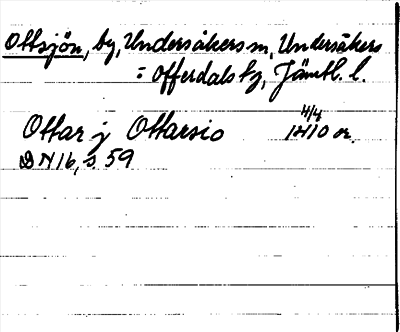 Ottsjön, by, Undersåkers sn, Undersåkers
= Offerdals tg, Jämtl. l.
4/4
Ottar j Ottarsio 1410 or.
DN 16, s 59